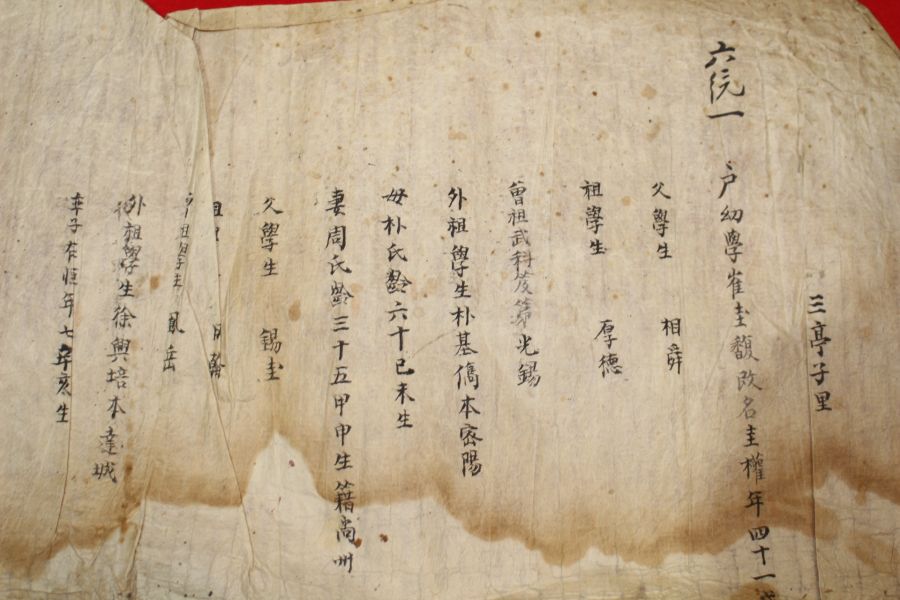 三亭子里
六统一
户幼學崔圭馥改名圭權年四十一
父學生 相舜
祖學生 厚德
曾祖武科及第光錫
外祖學生朴基儁本密陽
母朴氏齡六十己未生
妻周氏齡三十五甲申生籍尙州
父學生 錫圭
祖
曾祖學生 鳳岳
外祖學生徐興培本達城
率子 年七 亥生